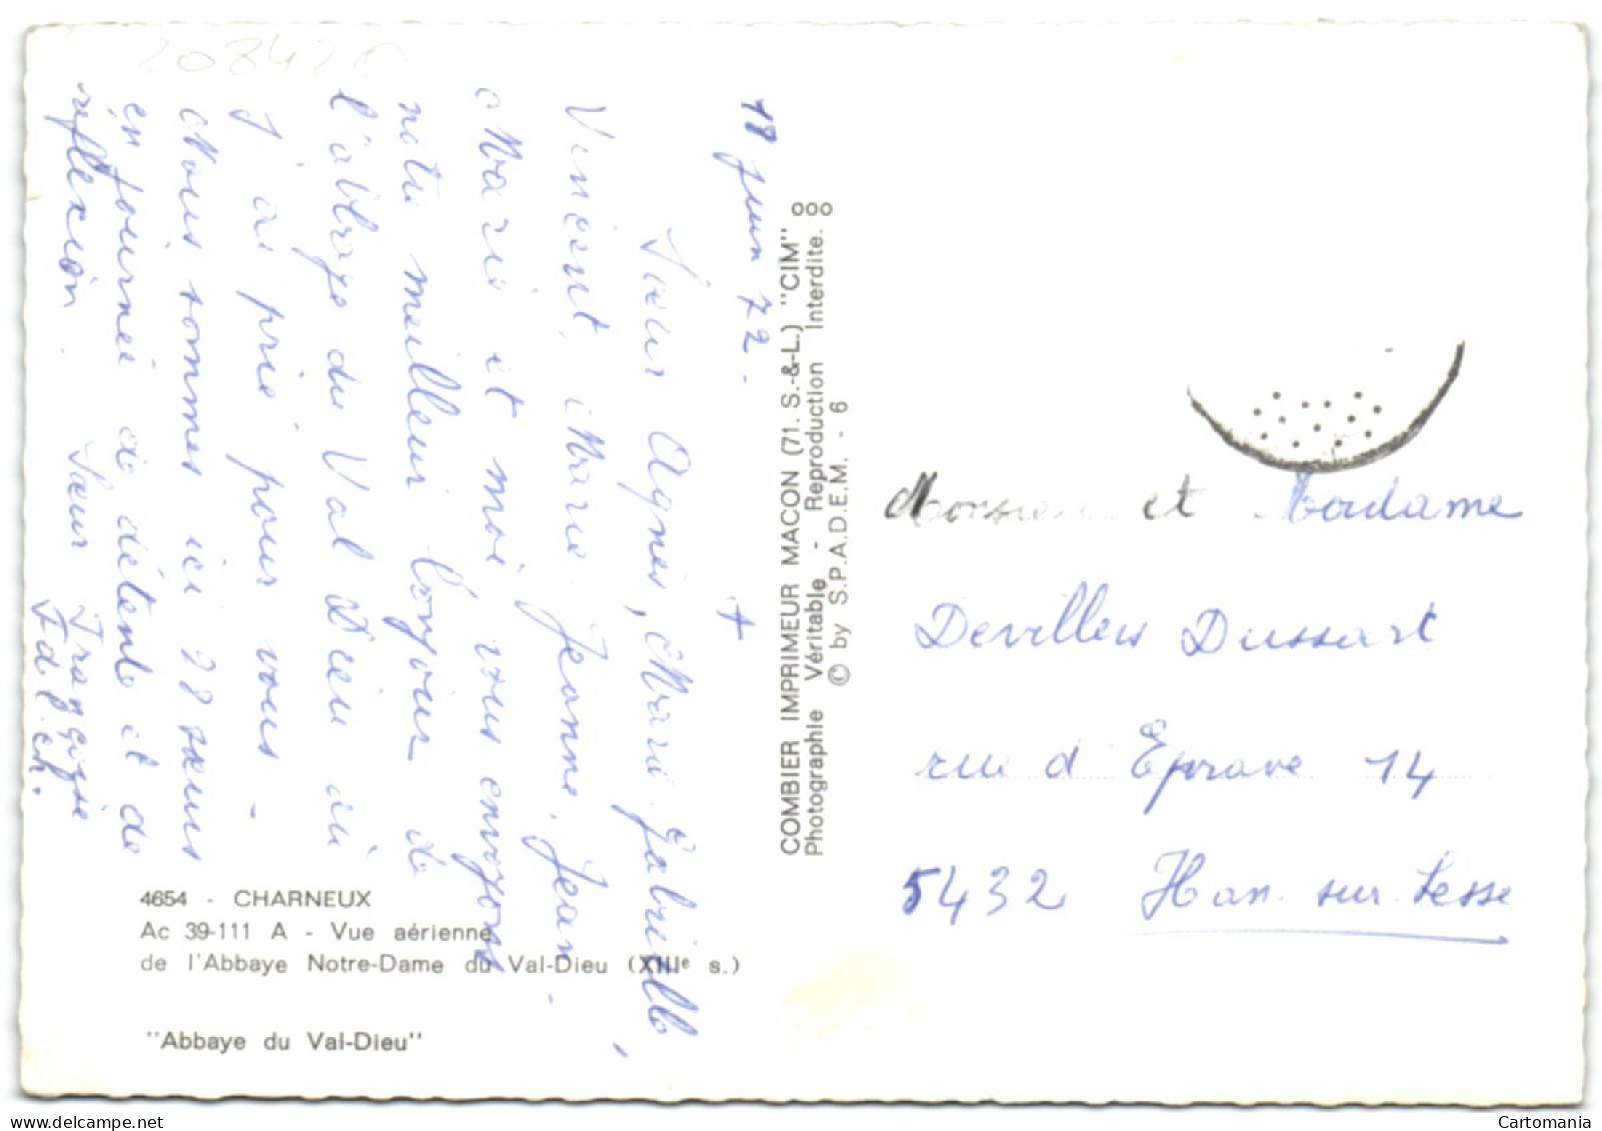 208426
18 juin 72.
+
Soeur Agnès, Marie Gabrielle,
Vincent, Marie Jeanne, Jean-
Marie et moi, vous envoyons
notre meilleur bonjour de
l'abbaye du Val Dieu où
j'ai prié pour vous -
Nous sommes ici 28 sœurs
en journée de détente et de
réflexion.
Sœur Françoise
F d. l. ch.
4654 - CHARNEUX
Ac 39-111 A - Vue aérienne
de l'Abbaye Notre-Dame du Val-Dieu (XIIIe s.)
"Abbaye du Val-Dieu"
COMBIER IMPRIMEUR MACON (71. S.-&-L.) "CIM"
Photographie Véritable - Reproduction Interdite.
© by S.P.A.D.E.M. - 6
Monsieur et Madame
Devillers Dussart
rue d'Eprave 14
5432 Han-sur-Lesse
Cartomania